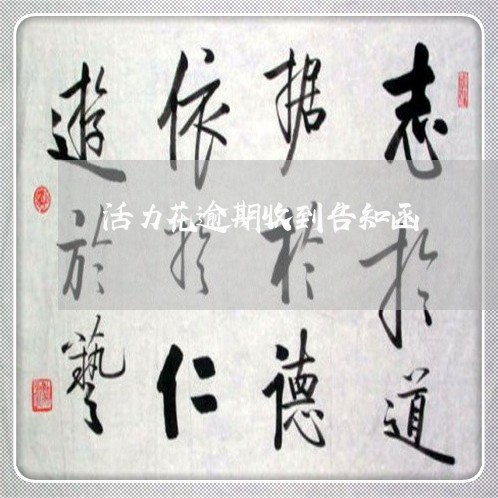 志於道
据於德
依於仁
遊於藝
活力花逾期收到告知函